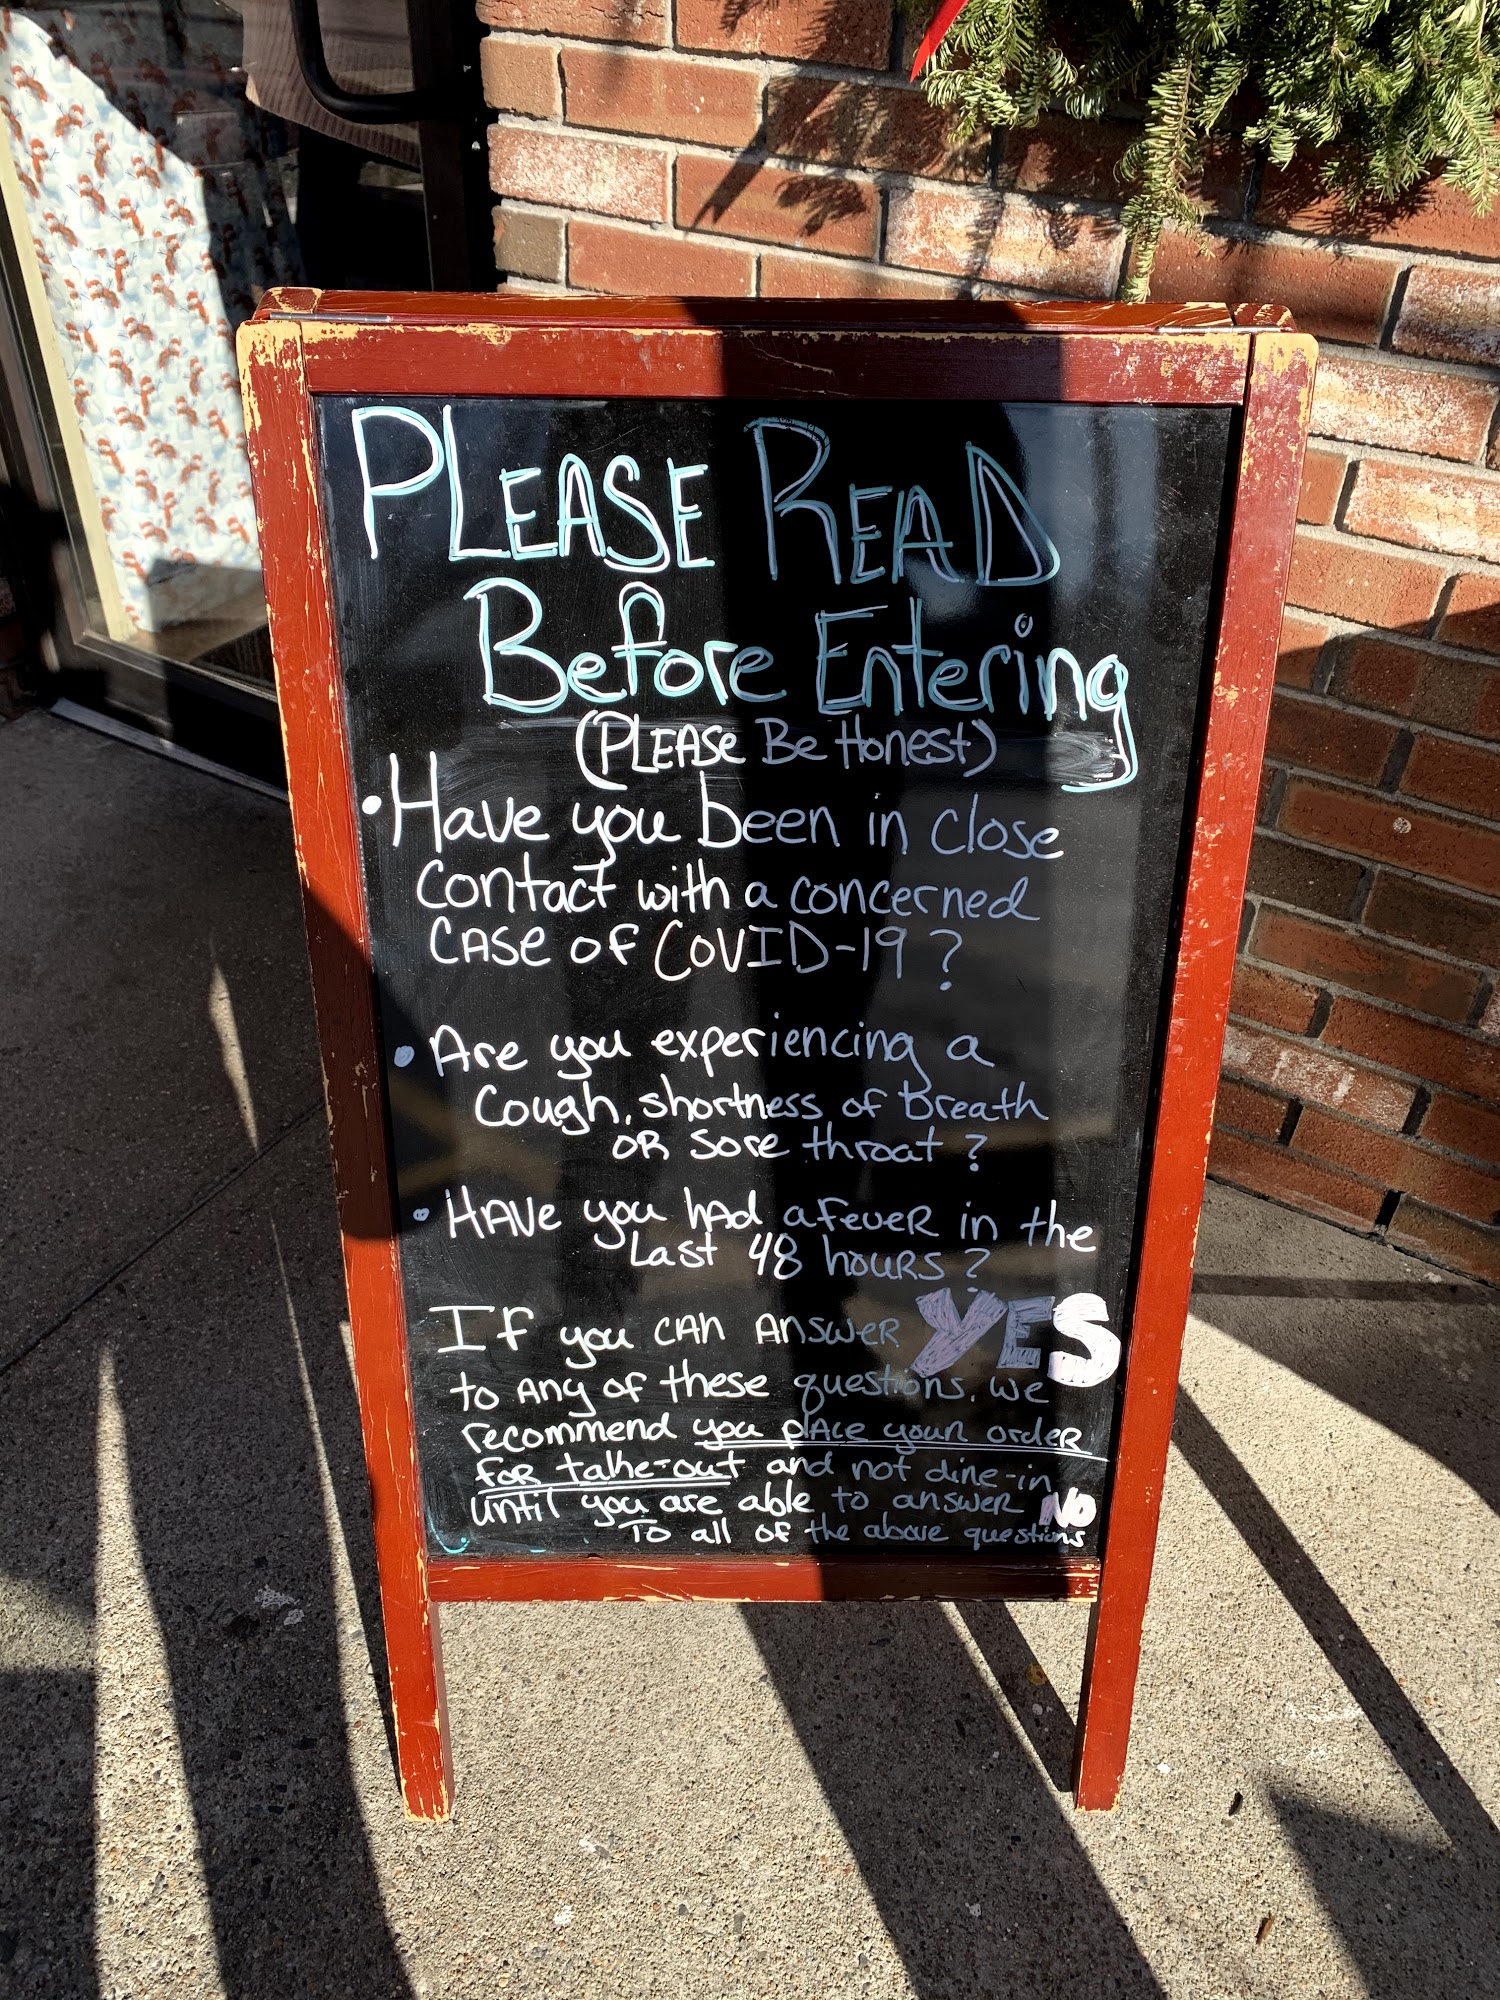 PLEASE READ
Before Entering
(PLEASE Be Honest)
• Have you been in close
contact with a concerned
CASE OF COVID-19?
• Are you experiencing a
Cough, shortness of breath
OR Sore throat?
• HAVe you hAd a FeveR in the
Last 48 hours?
If you CAn AnsweR YES
to Any of these questions, we
recommend you plAce your order
FOR take-out and not dine-in
until you are able to answer NO
To all of the above questions